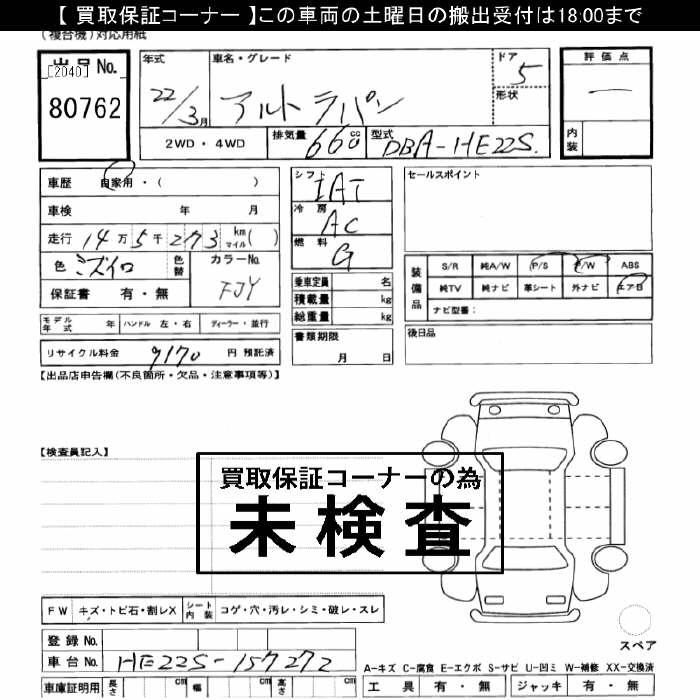 【 買取保証コーナー 】この車両の土曜日の搬出受付は18:00まで
(複合機)対応用紙
出品No.
[2040]
80762
年式 車名・グレード ドア
22/3月 アルトラパン 5
形状
2WD・4WD 排気量 660cc 型式 DBA-HE22S.
評価点
一
内装
車歴 自家用・( )
車検 年 月
走行 14万5千273 km マイル( )
色 ミズイロ 色替 カラーNo. FJY
保証書 有・無
シフト IAT
冷房 AC
燃料 G
乗車定員 名
積載量 kg
総重量 kg
セールスポイント
装備品 S/R 純A/W P/S P/W ABS
純TV 純ナビ 革シート 外ナビ エアB
ナビ型番:
モデル年式 年 ハンドル 左・右 ディーラー・並行
書類期限
月 日
後日品
リサイクル料金 9170 円 預託済
【出品店申告欄(不良個所・欠品・注意事項等)】
【検査員記入】
買取保証コーナーの為
未検査
FW キズ・トビ石・割レX シート内装 コゲ・穴・汚レ・シミ・破レ・スレ
登録No.
車台No. HE22S-157272
車庫証明用 長さ cm 幅 cm 高さ cm
スペア
A-キズ C-腐食 E-エクボ S-サビ U-凹ミ W-補修 XX-交換済
工具 有・無 ジャッキ 有・無